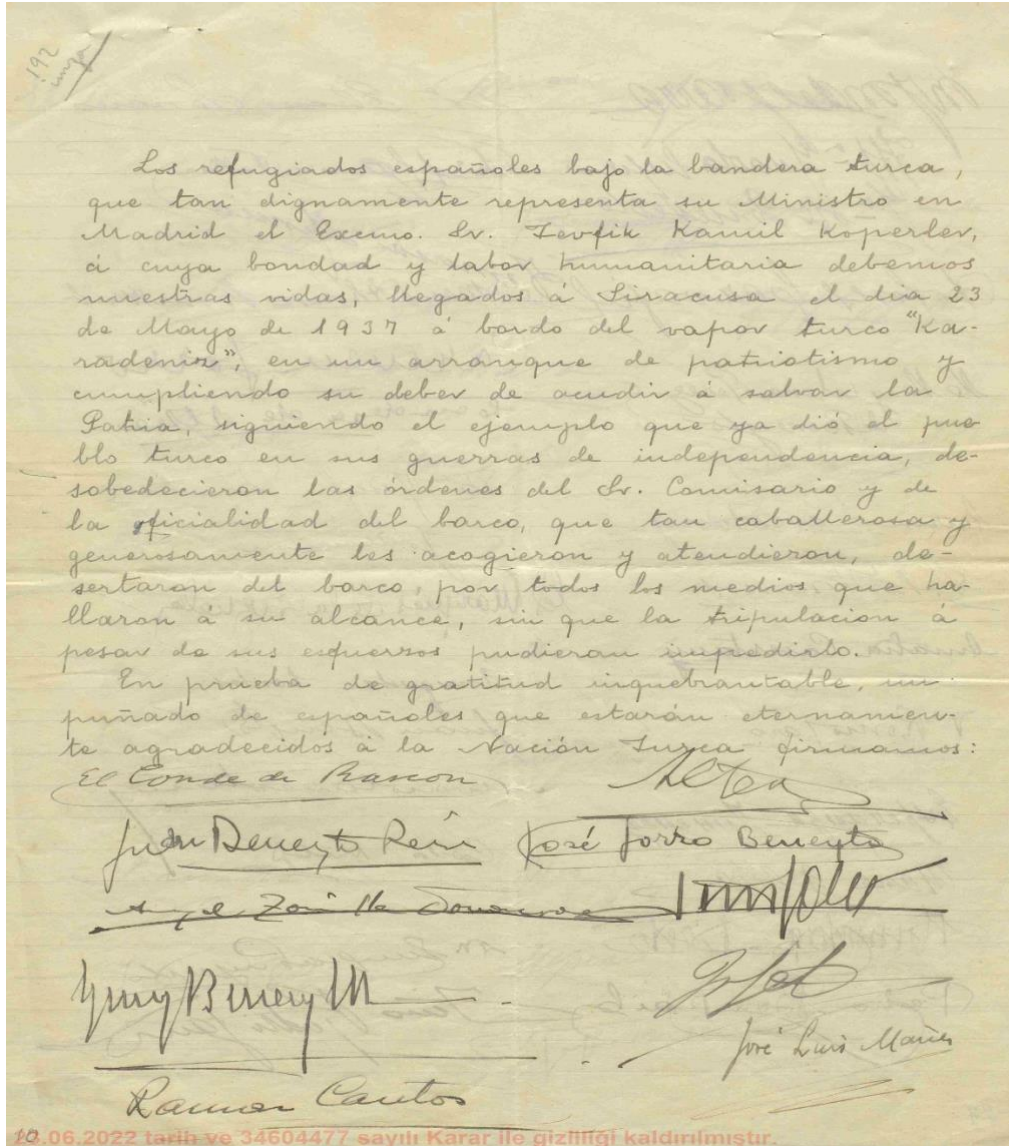 192
imza
Los refugiados españoles bajo la bandera turca,
que tan dignamente representa su Ministro en
Madrid el Excmo. Sr. Tevfik Kamil Koperler,
á cuya bondad y labor humanitaria debemos
nuestras vidas, llegados á Siracusa el dia 23
de Mayo de 1937 á bordo del vapor turco "Ka-
radeniz", en un arranque de patriotismo y
cumpliendo su deber de acudir á salvar la
Patria, siguiendo el ejemplo que ya dió el pue
blo turco en sus guerras de independencia, de-
sobedecieron las órdenes del Sr. Comisario y de
la oficialidad del barco, que tan caballerosa y
generosamente les acogieron y atendieron, de-
sertaron del barco, por todos los medios que ha-
llaron á su alcance, sin que la tripulacion á
pesar de sus esfuerzos pudieran impedirlo.
En prueba de gratitud inquebrantable, un
puñado de españoles que estarán eternamen-
te agradecidos á la Nación Turca firmamos:
El Conde de Rascon Altea
Juan Beneyto José Jorro Beneyto
José Luis Mañes
Ramon Cantos
10
23.06.2022 tarih ve 34604477 sayılı Karar ile gizliliği kaldırılmıştır.